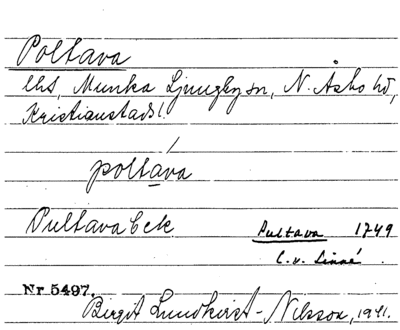 Poltava
lht, Munka Ljungby sn, N. Åsbo hd,
Kristianstads l.
poltava
Pultava bck
Pultava 1749
C. v. Linné.
Nr 5497.
Birgit Lundkvist-Nilsson, 1941.